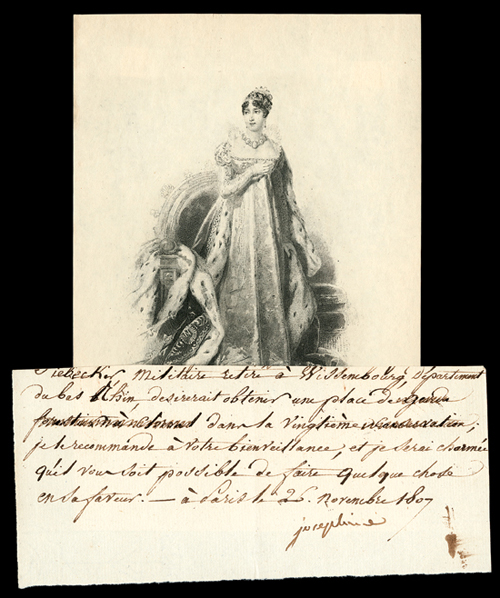 militaire retiré à Wissembourg, Département
du bas Rhin, desirerait obtenir une place de garde
dans la vingtième conservation;
je le recommande à votre bienveillance, et je serai charmée
qu'il vous soit possible de faire quelque chose
en sa faveur. — à Paris le 26. novembre 1807
josephine